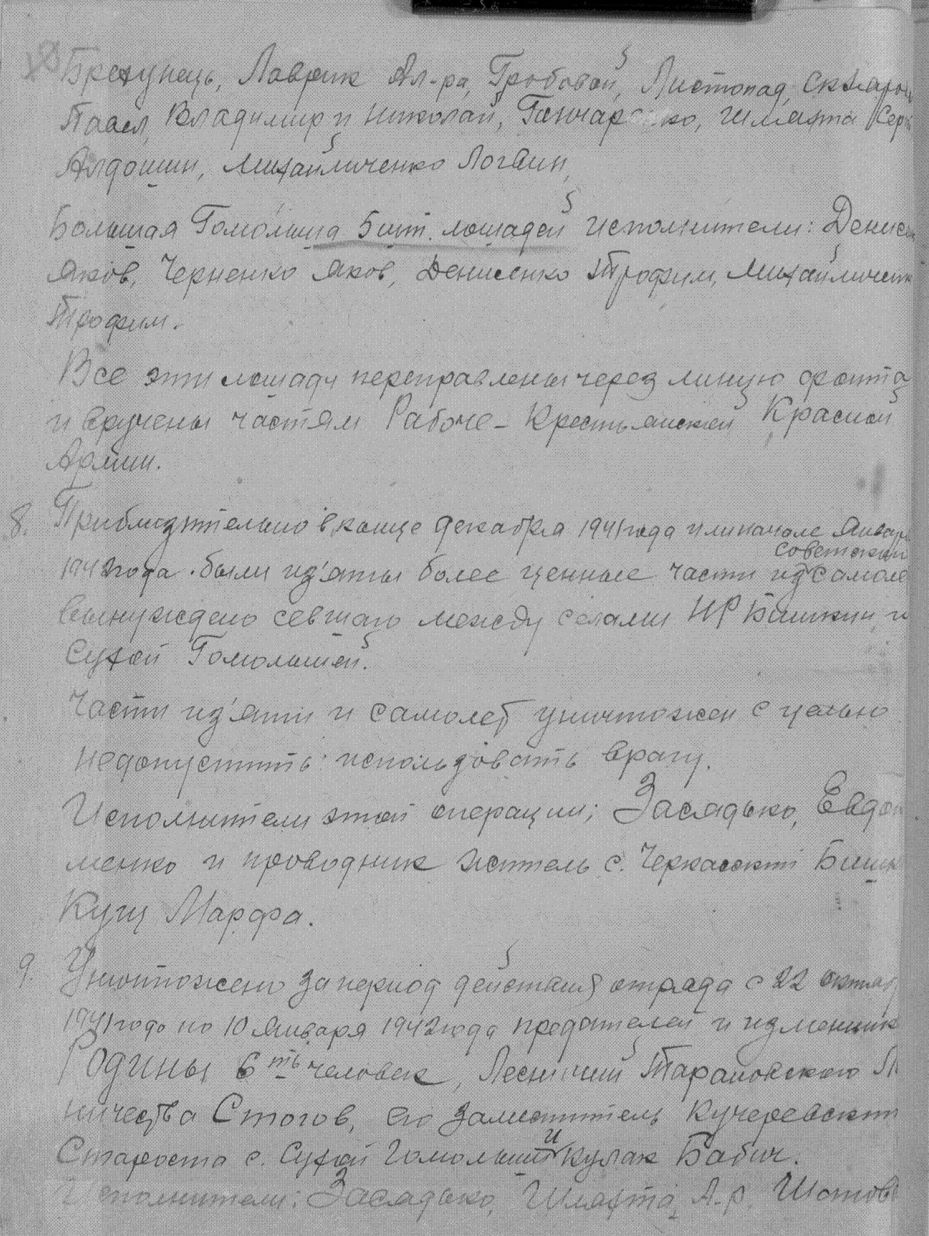 Брехунець, Лаврик Ал-ра, Гробовой, Листопад, Скляров
Павел, Владимир и Николай, Гончаренко, Шляхта
Алдошин, Михайличенко Логвин,
Большая Гомольша 5 шт. лошадей исполнители: Денисен
Яков, Черненко Яков, Денисенко Трофим, Михайличенк
Трофим.
Все эти лошади переправлены через линию фронта
и вручены частям Рабоче-Крестьянской Красной
Армии.
8. Приблизительно в конце декабря 1941 года или начале Январ
советский
1942 года были из'яты более ценные части из самоле
вынуждено севшаго между селами ЧР Бишкин и
Сухой Гомольшей.
Части из'яти и самолет уничтожен с целью
недопустить использовать врагу.
Исполнители этой операции: Засядько, Евдо
менко и проводник житель с. Черкасский Бишк
Кущ Марфа.
9. Уничтожено за период действия отряда с 22 октяб
1941 года по 10 Января 1942 года предателей и изменник
Родины 6ть человек, Лесничий Тарановского Л
ничества Стогов, его заместитель Кучеревский
Староста с. Сухой Гомольши и кулак Бабич.
Исполнители: Засядько, Шляхта, А-р. Шотов